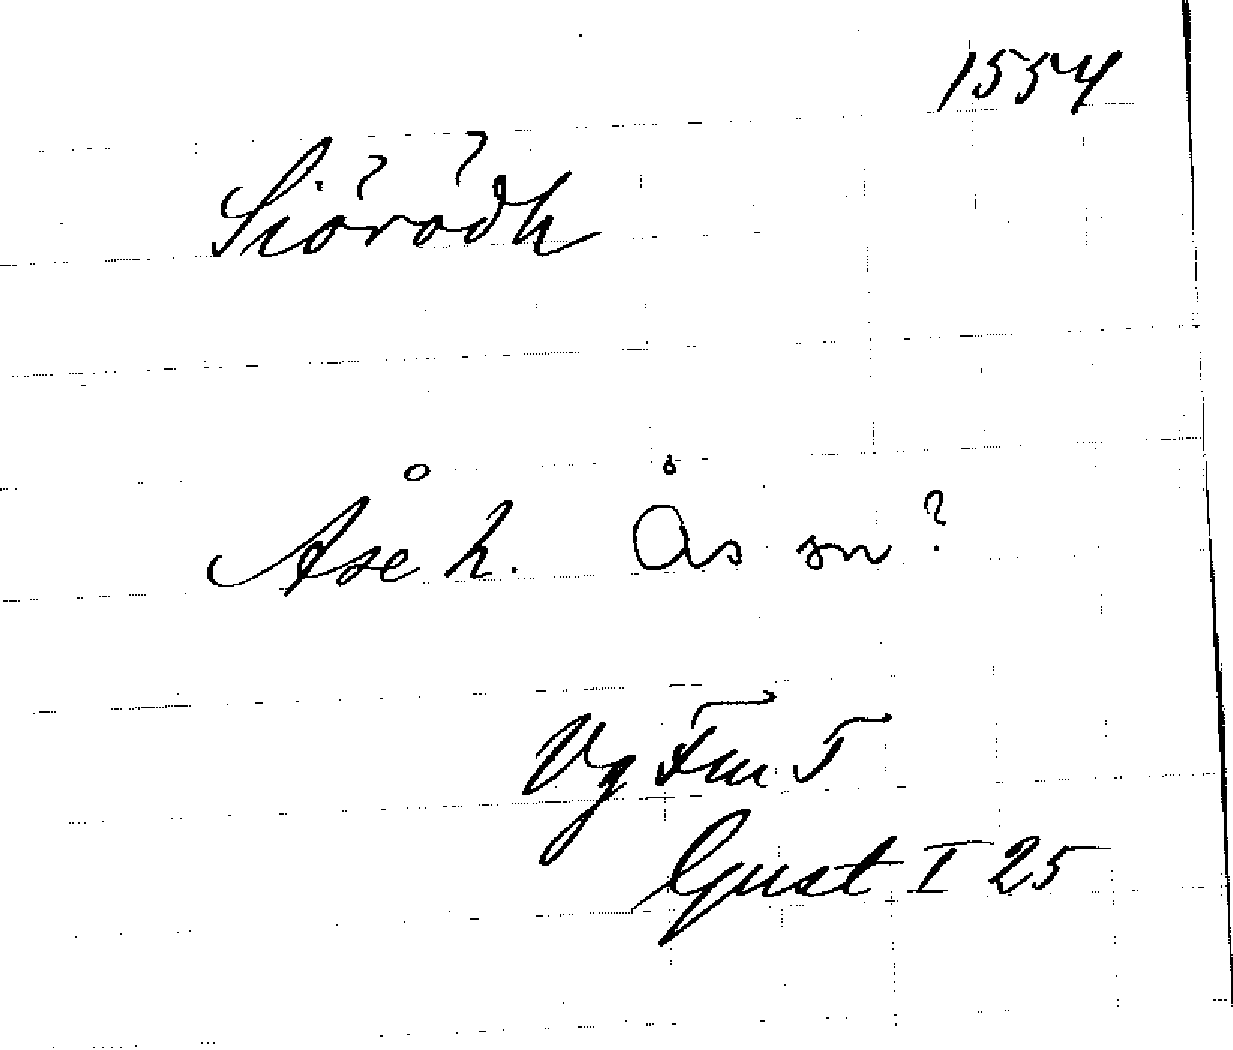 1554
Siörödh
Åse h. Ås sn?
Vg Fm T
Gust I 25